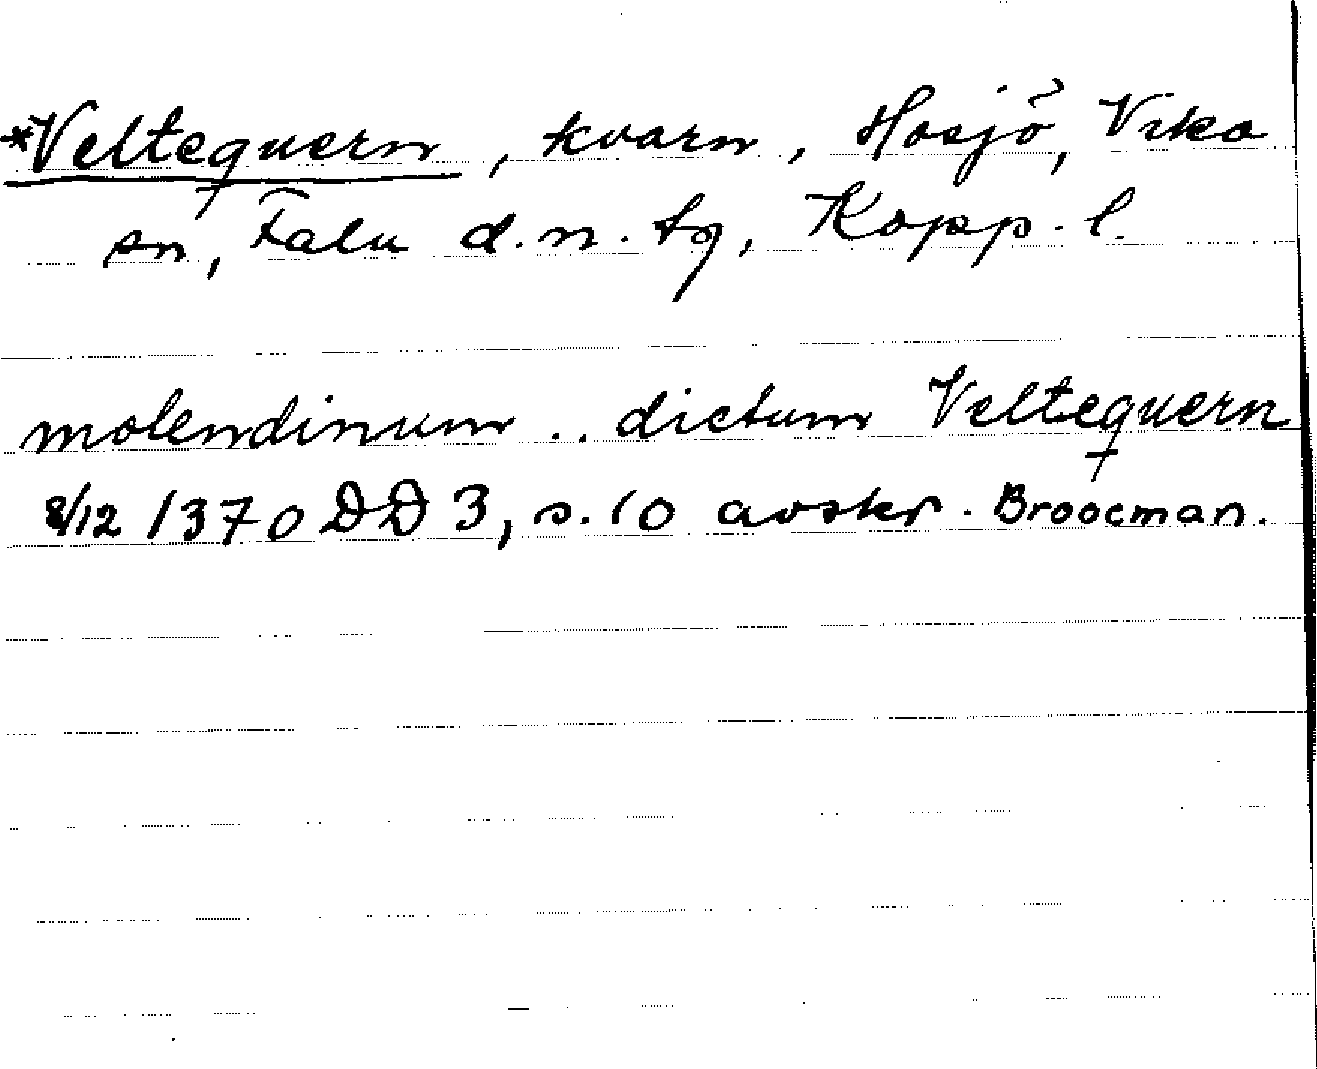 *Veltequern, kvarn, Hosjö, Vika
sn, Falu d.n. tg, Kopp. l.
molendinum .. dictum Veltequern
8/12 1370 DD 3, s. 10 avskr. Broocman.